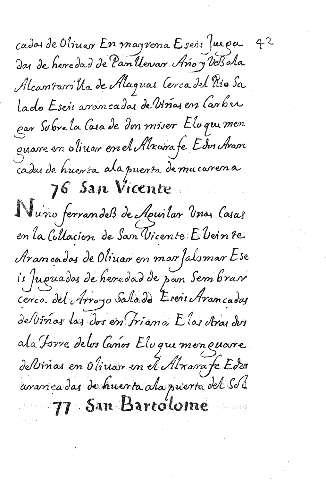 cadas de Olivar En magrena E seis Juga 42
das de heredad de Pan llevar Año y Vez a la
Alcantarilla de Alaquas Cerca del Rio Sa
lado E seis arancadas de Viñas en Carbu
gar Sobre la Casa de don miser E lo que men
guare en olivar en el Alxarafe E dos Aran
cadas de huerta a la puerta de macarena
76 San Vicente
Nuño ferrandeß de Aguilar Unas Casas
en la Collacion de San Vicente E Veinte
Arancadas de Olivar en mar Jalomar E se
is Juguadas de heredad de pan Sembrar
cerca del Arroyo Salado E seis Arancadas
de Viñas las dos en Triana E las otras dos
a la Torre de los Caños E lo que menguare
de Viñas en Olivar en el Alxarafe E dos
arancadas de huerta a la puerta del Sol
77 San Bartolome